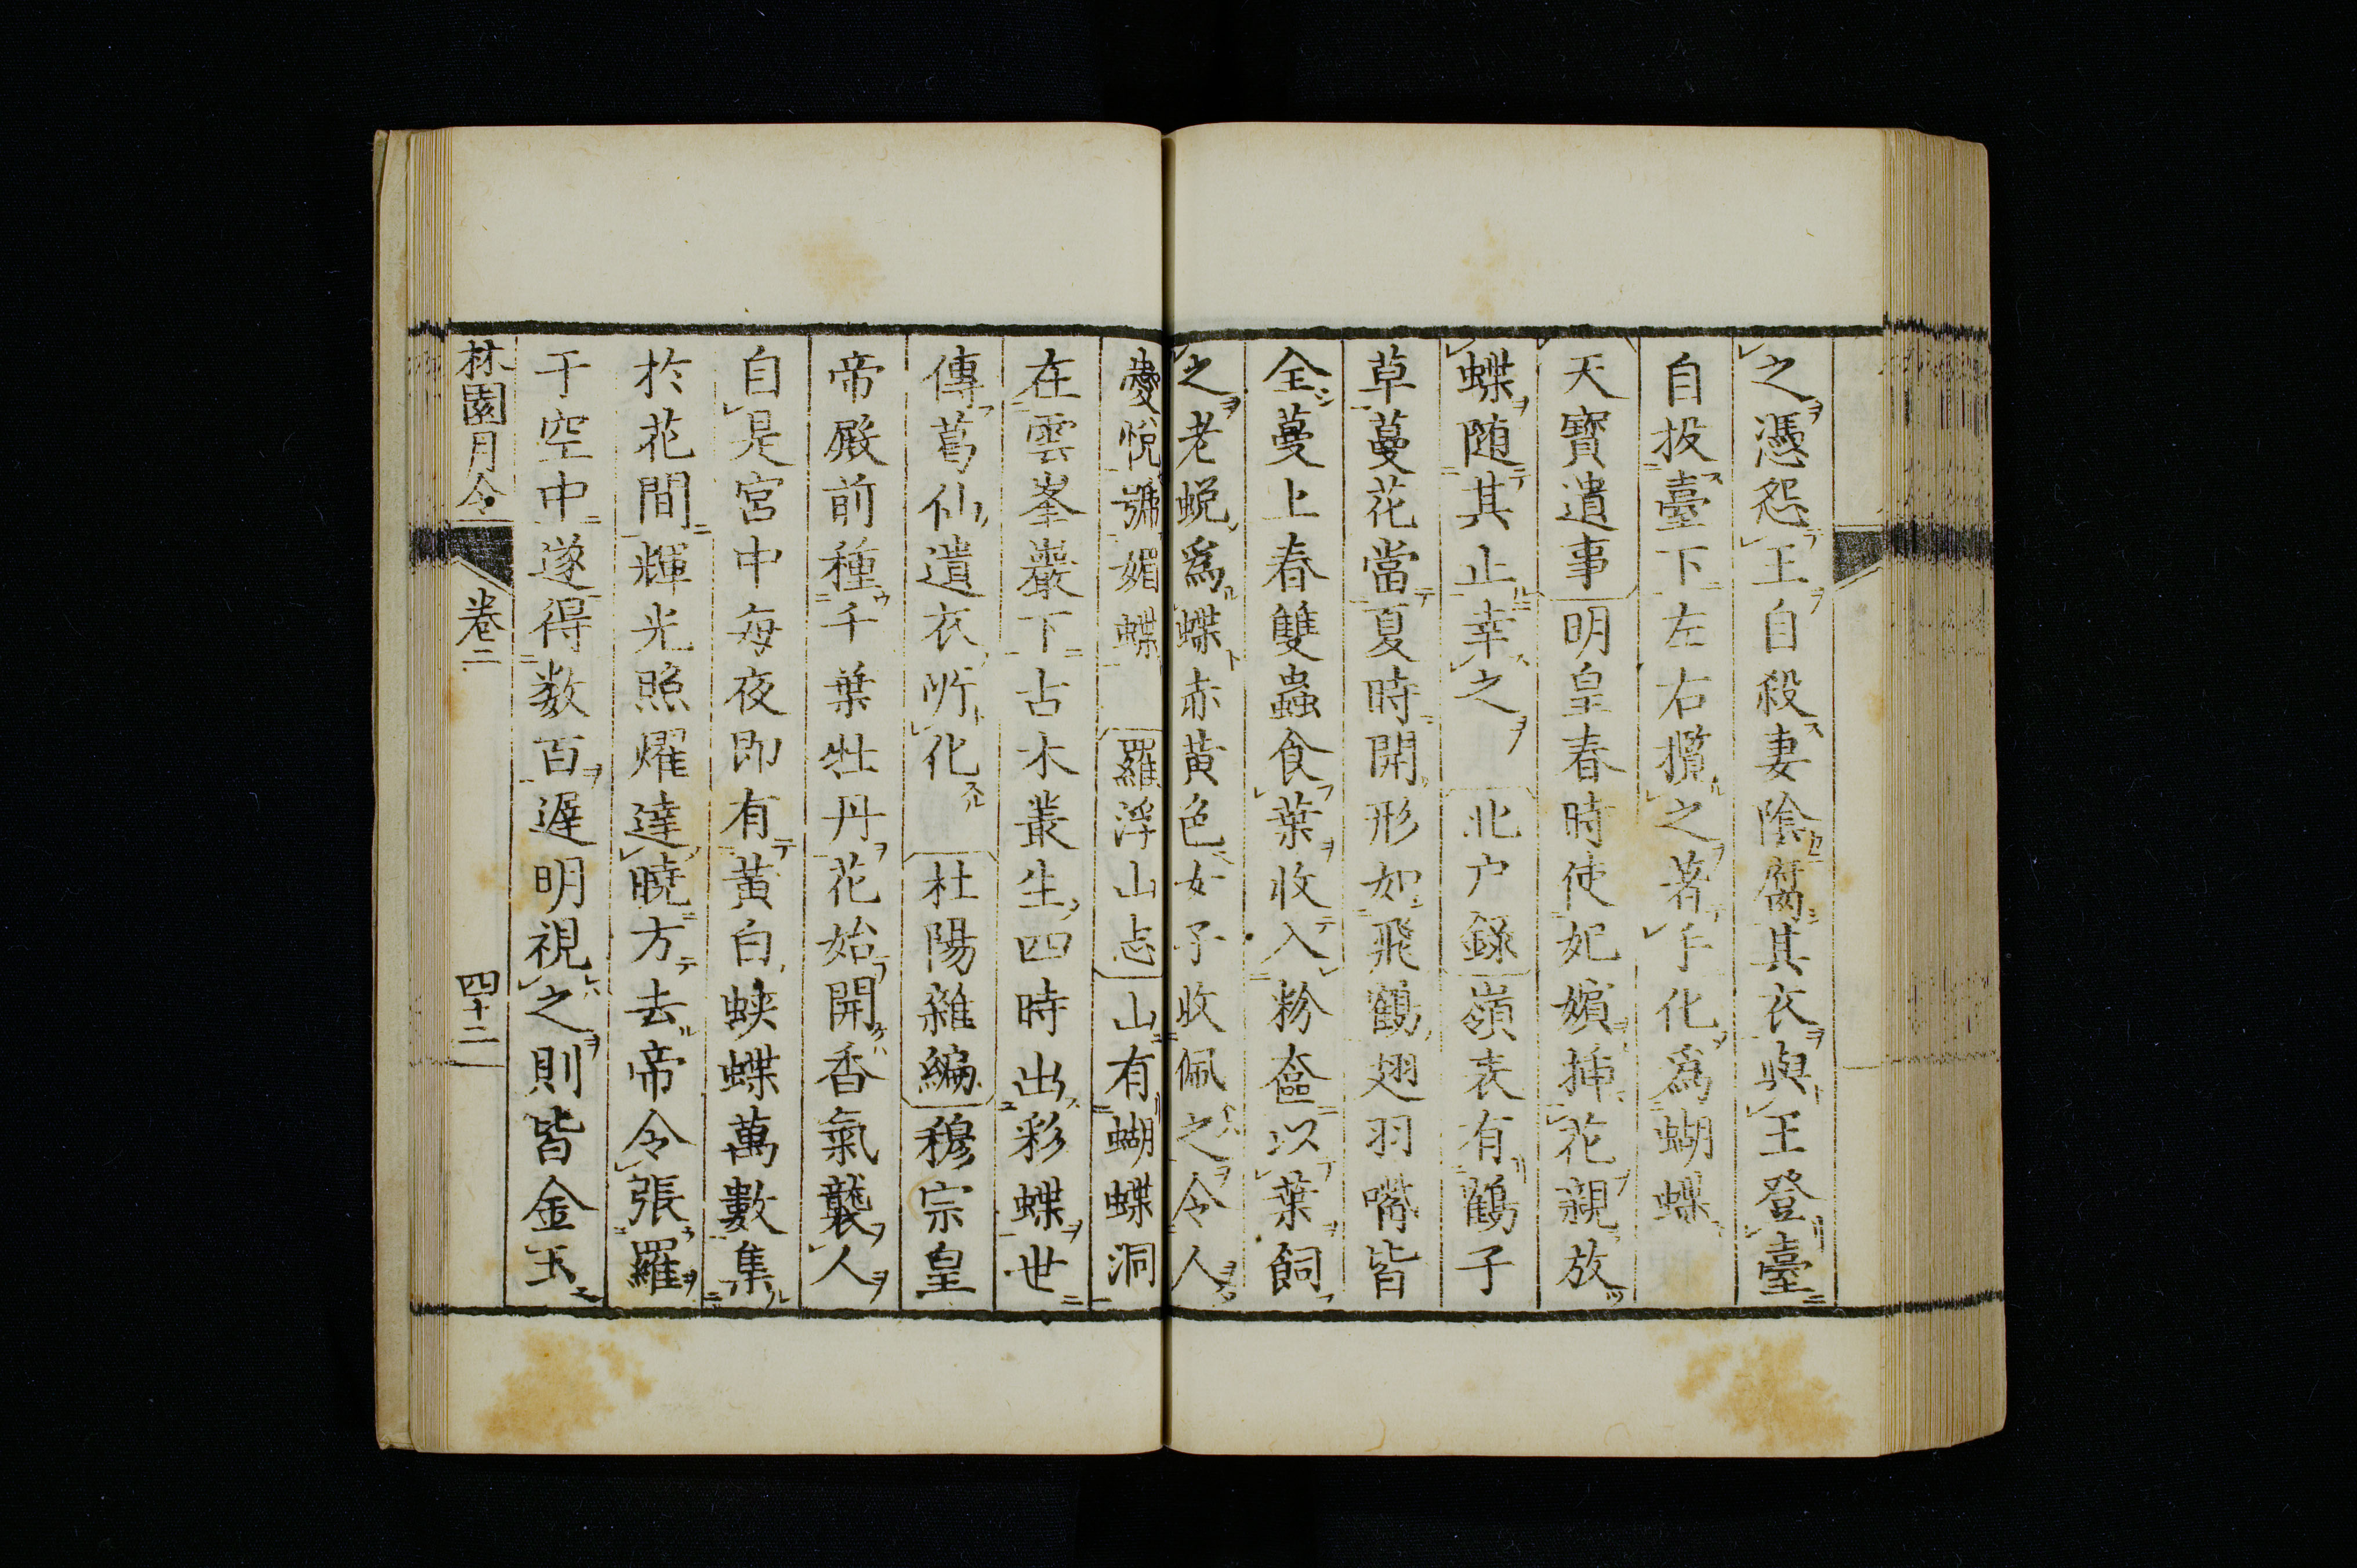 之憑怨王自殺妻陰腐其衣與王登臺
自投臺下左右攬之著手化爲蝴蝶
天寶遺事明皇春時使妃嬪挿花親放
蝶随其止幸之 北户録嶺表有鶴子
草蔓花當夏時開形如飛鶴翅羽嘴皆
全蔓上春雙蟲食葉收入粉奩以葉飼
之老蛻爲蝶赤黄色女子收佩之令人
愛悅號媚蝶 羅浮山志山有蝴蝶洞
在雲峯巖下古木叢生四時出彩蝶世
傳葛仙遺衣所化 杜陽雜編穆宗皇
帝殿前種千葉牡丹花始開香氣襲人
自是宮中每夜即有黄白蛺蝶萬數集
於花間輝光照燿達曉方去帝令張羅
于空中遂得数百遲明視之則皆金玉
林園月令 卷二 四十二